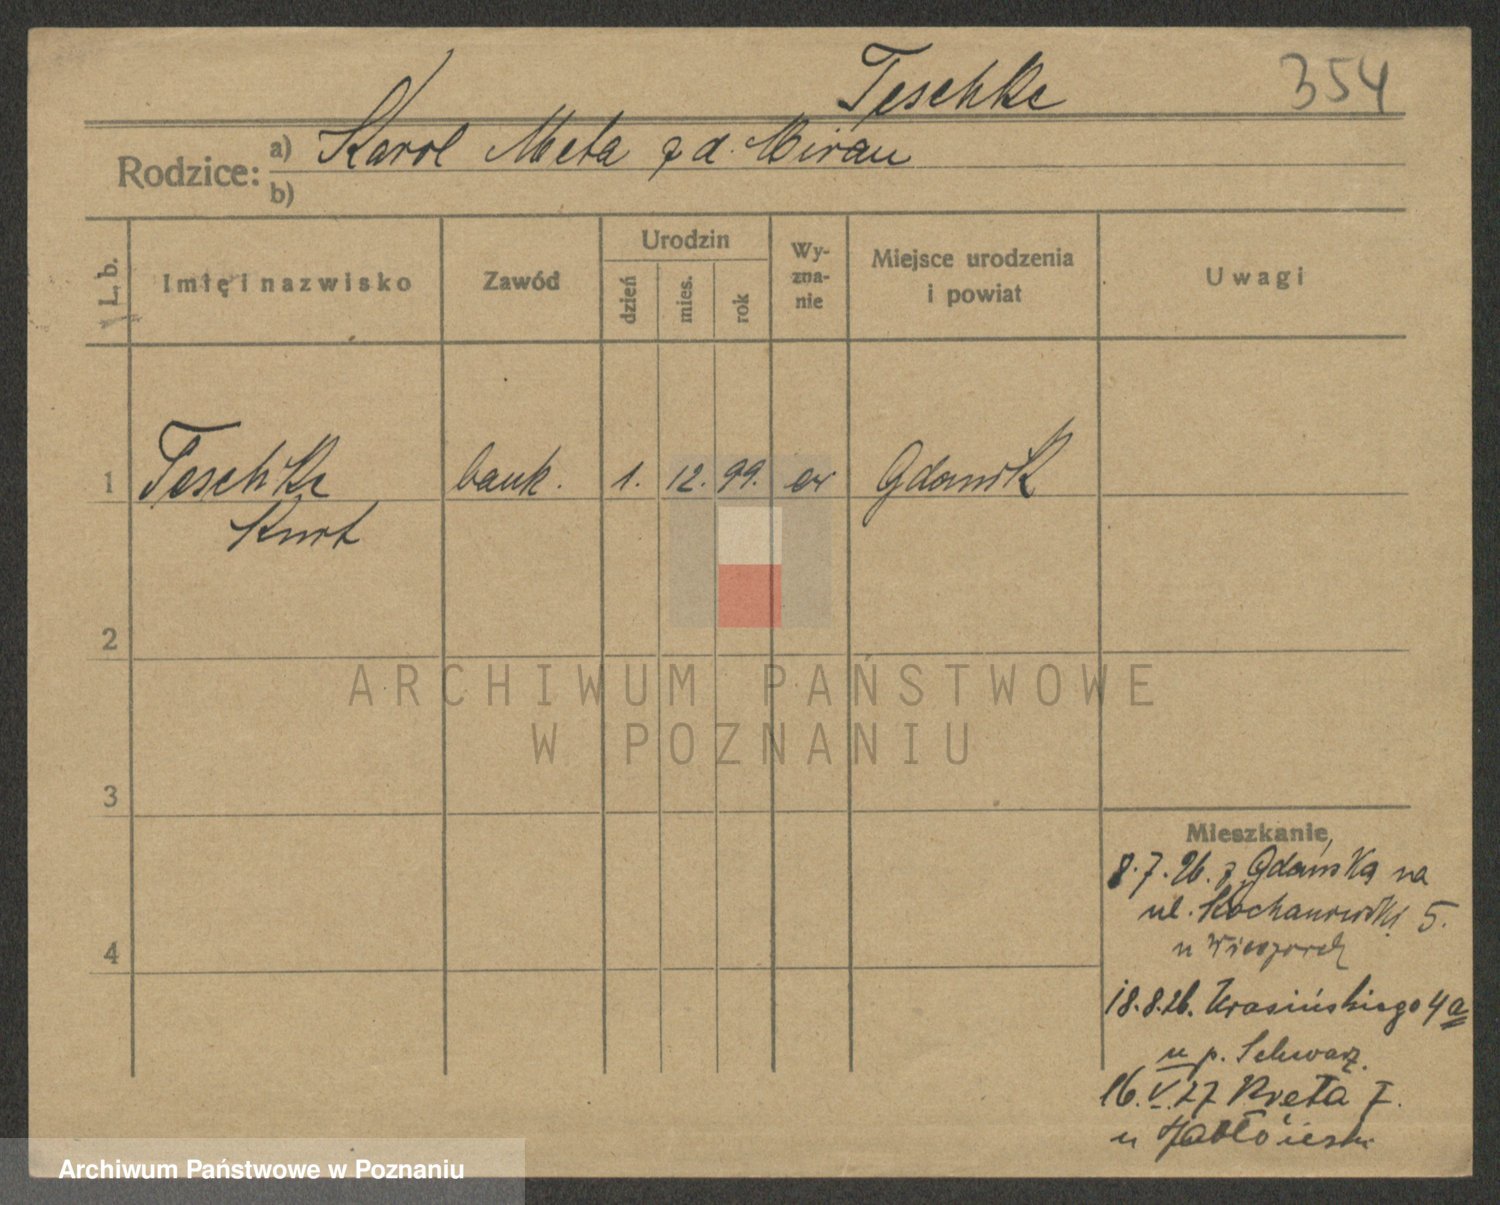 Teschke 354
Rodzice: a) Karol Meta z d. Mirau
b)
L. b. Imię i nazwisko Zawód Urodzin dzień mies. rok Wy-zna-nie Miejsce urodzenia i powiat Uwagi
1 Teschke bank. 1. 12. 99. ew Gdańsk
Kurt
2
ARCHIWUM PAŃSTWOWE
W POZNANIU
3
Mieszkanie
8.7.26. z Gdańska na
ul. Kochanowski 5.
u
4
18.8.26. Krasińskiego 4a
u p. Schwarz
16.V.27 Kręta 7.
u
Archiwum Państwowe w Poznaniu